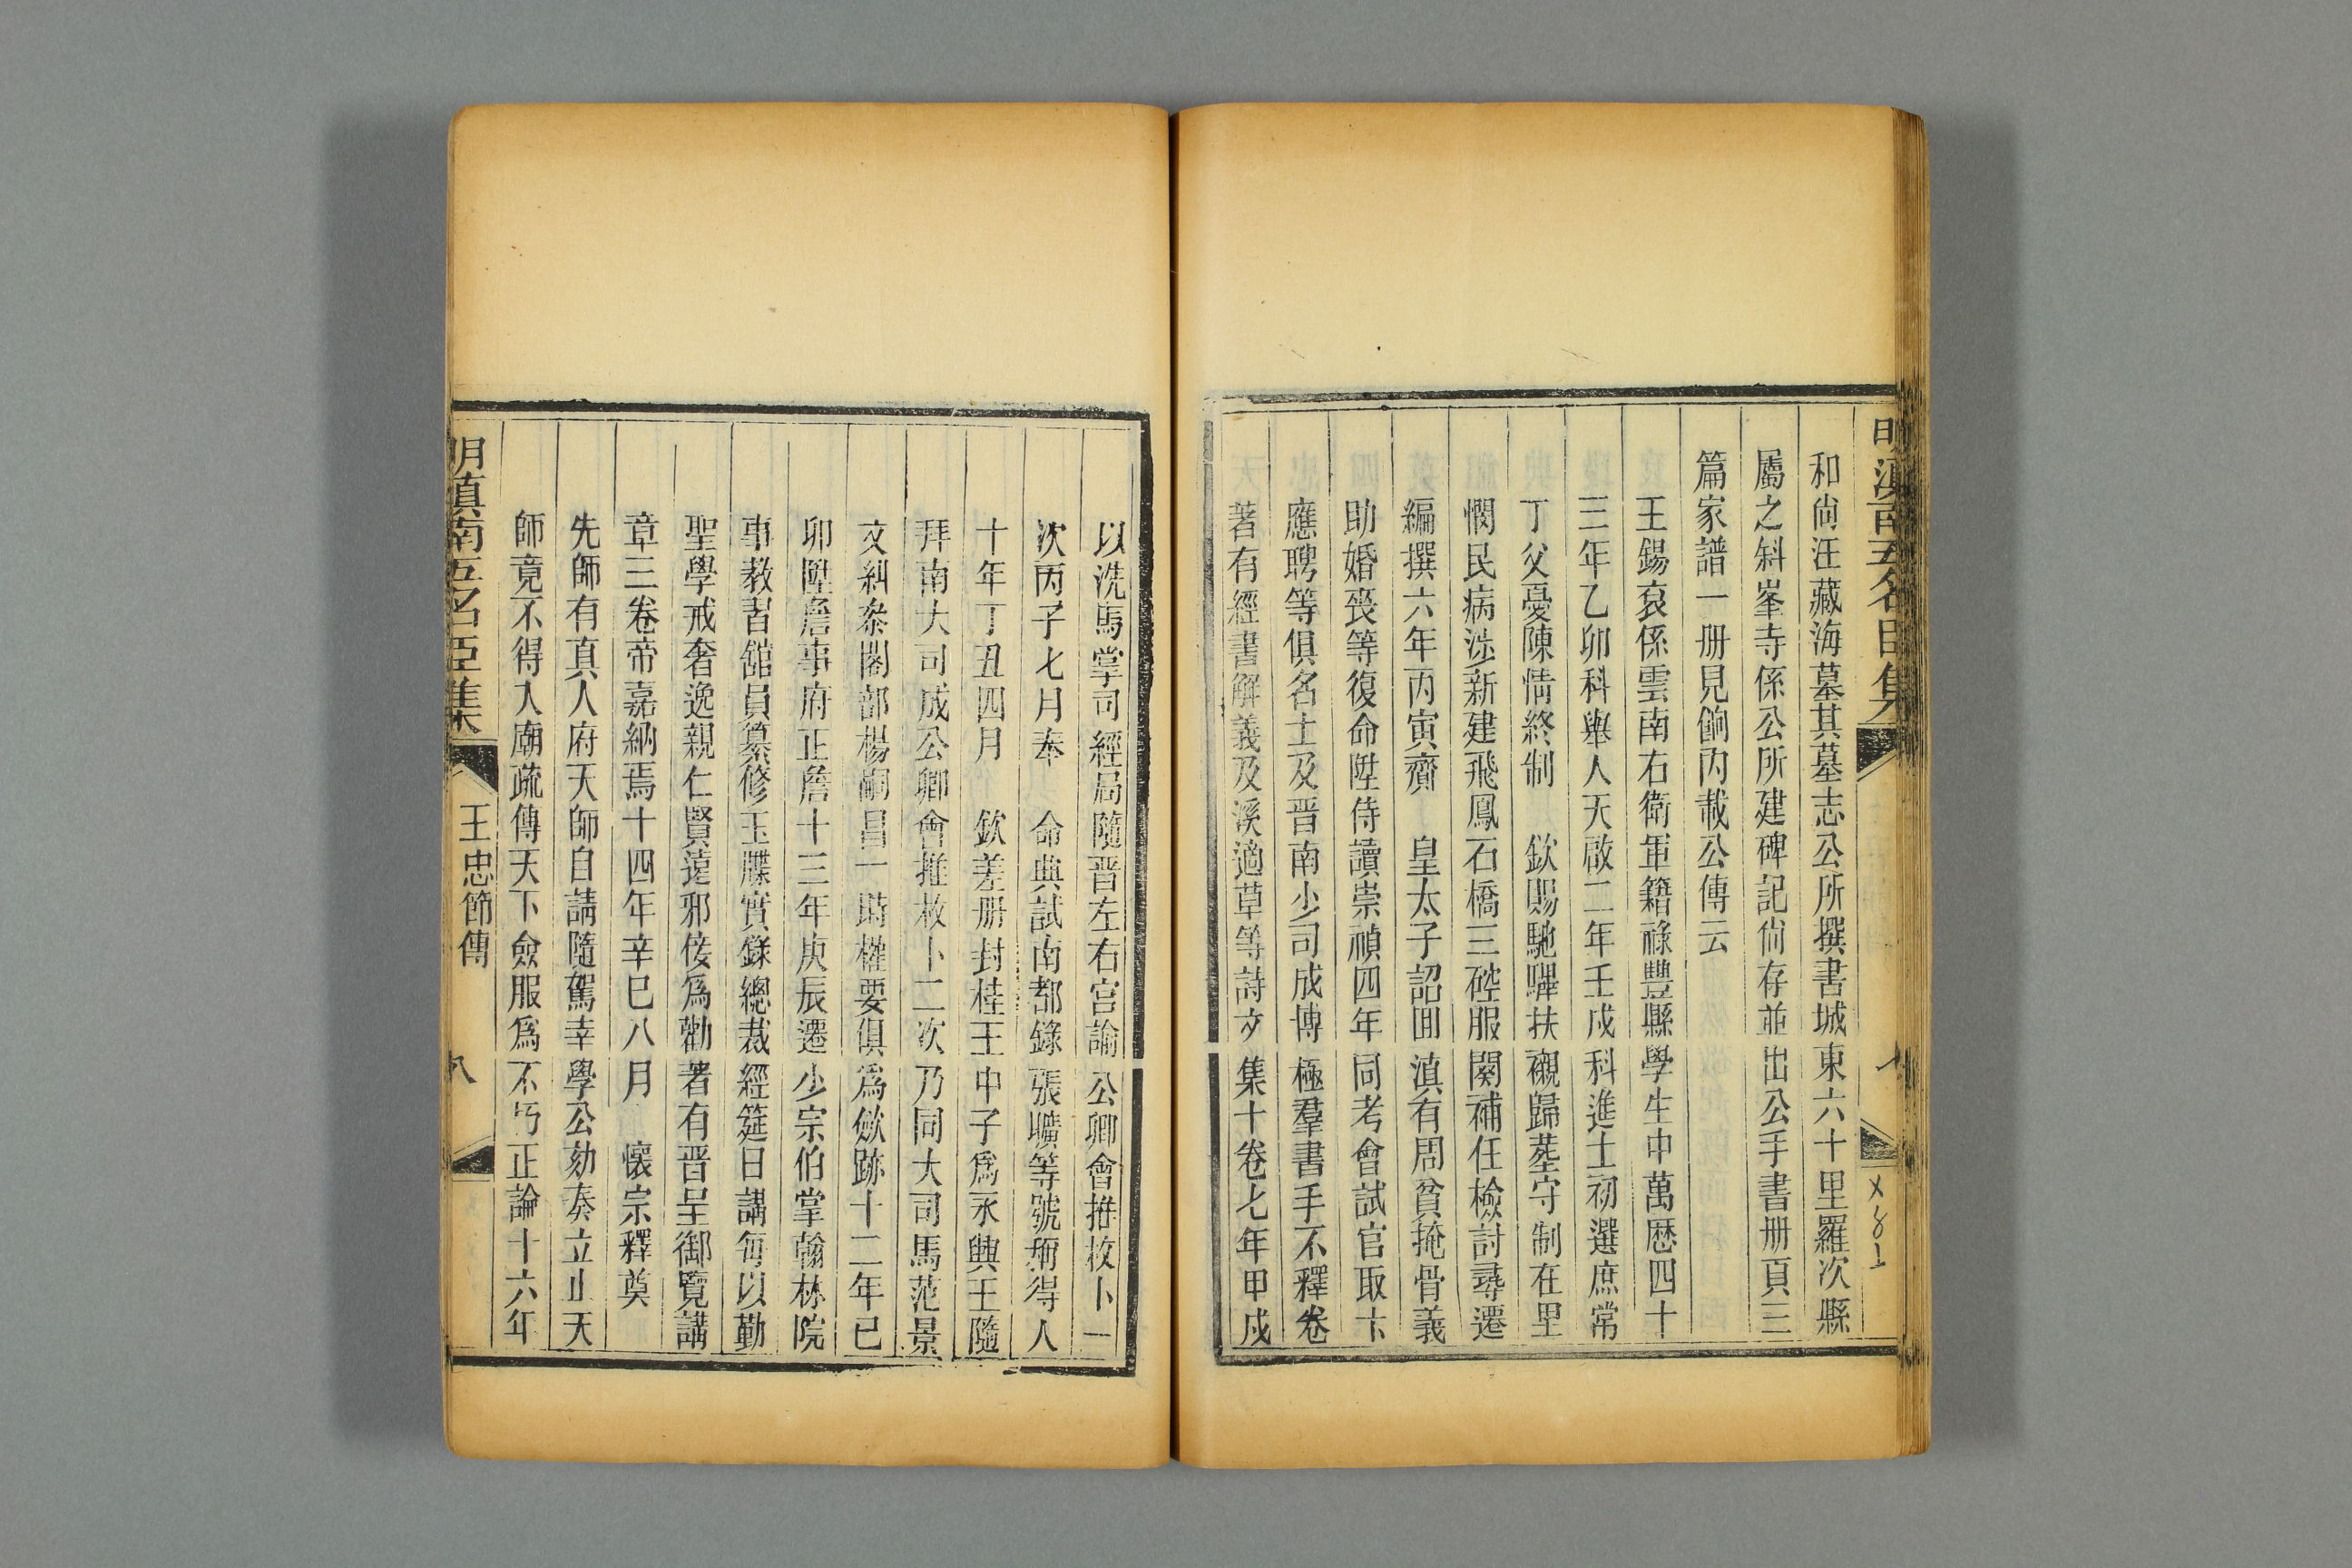 明滇南五名臣集
和尙汪藏海墓其墓志公所撰書城東六十里羅次縣
屬之斜峯寺係公所建碑記尙存並出公手書册頁三
篇家譜一册見餉內載公傳云
王錫袞係雲南右衛軍籍祿豐縣學生中萬歷四十
三年乙卯科舉人天啟二年壬戌科進士初選庶常
丁父憂陳情終制　欽賜馳驛扶襯歸塟守制在里
憫民病涉新建飛鳳石橋三硿服闋補任檢討尋遷
編撰六年丙寅齎　皇太子詔囬滇有周貧掩骨義
助婚喪等復命陞侍讀崇禎四年同考會試官取卞
應聘等俱名士及晋南少司成博極羣書手不釋卷
著有經書解義及溪適草等詩文集十卷七年甲戌
以洗馬掌司經局隨晋左右宫諭公卿會推枚卜一
次丙子七月奉　命典試南都錄張曠等號稱得人
十年丁丑四月　欽差册封桂王中子爲永興王隨
拜南大司成公卿會推枚卜二次乃同大司馬范景
文糾叅閣部楊嗣昌一時權要俱爲歛跡十二年已
卯陞詹事府正詹十三年庚辰遷少宗伯掌翰林院
事教習舘員纂修玉牒實錄總裁經筵日講每以勤
聖學戒奢逸親仁賢遠邪佞爲勸著有晋呈御覽講
章三卷帝嘉納焉十四年辛巳八月　懷宗釋奠
先師有真人府天師自請隨駕幸學公劾奏立止天
師竟不得入廟疏傳天下僉服爲不朽正論十六年
明滇南五名臣集
王忠節傳
八